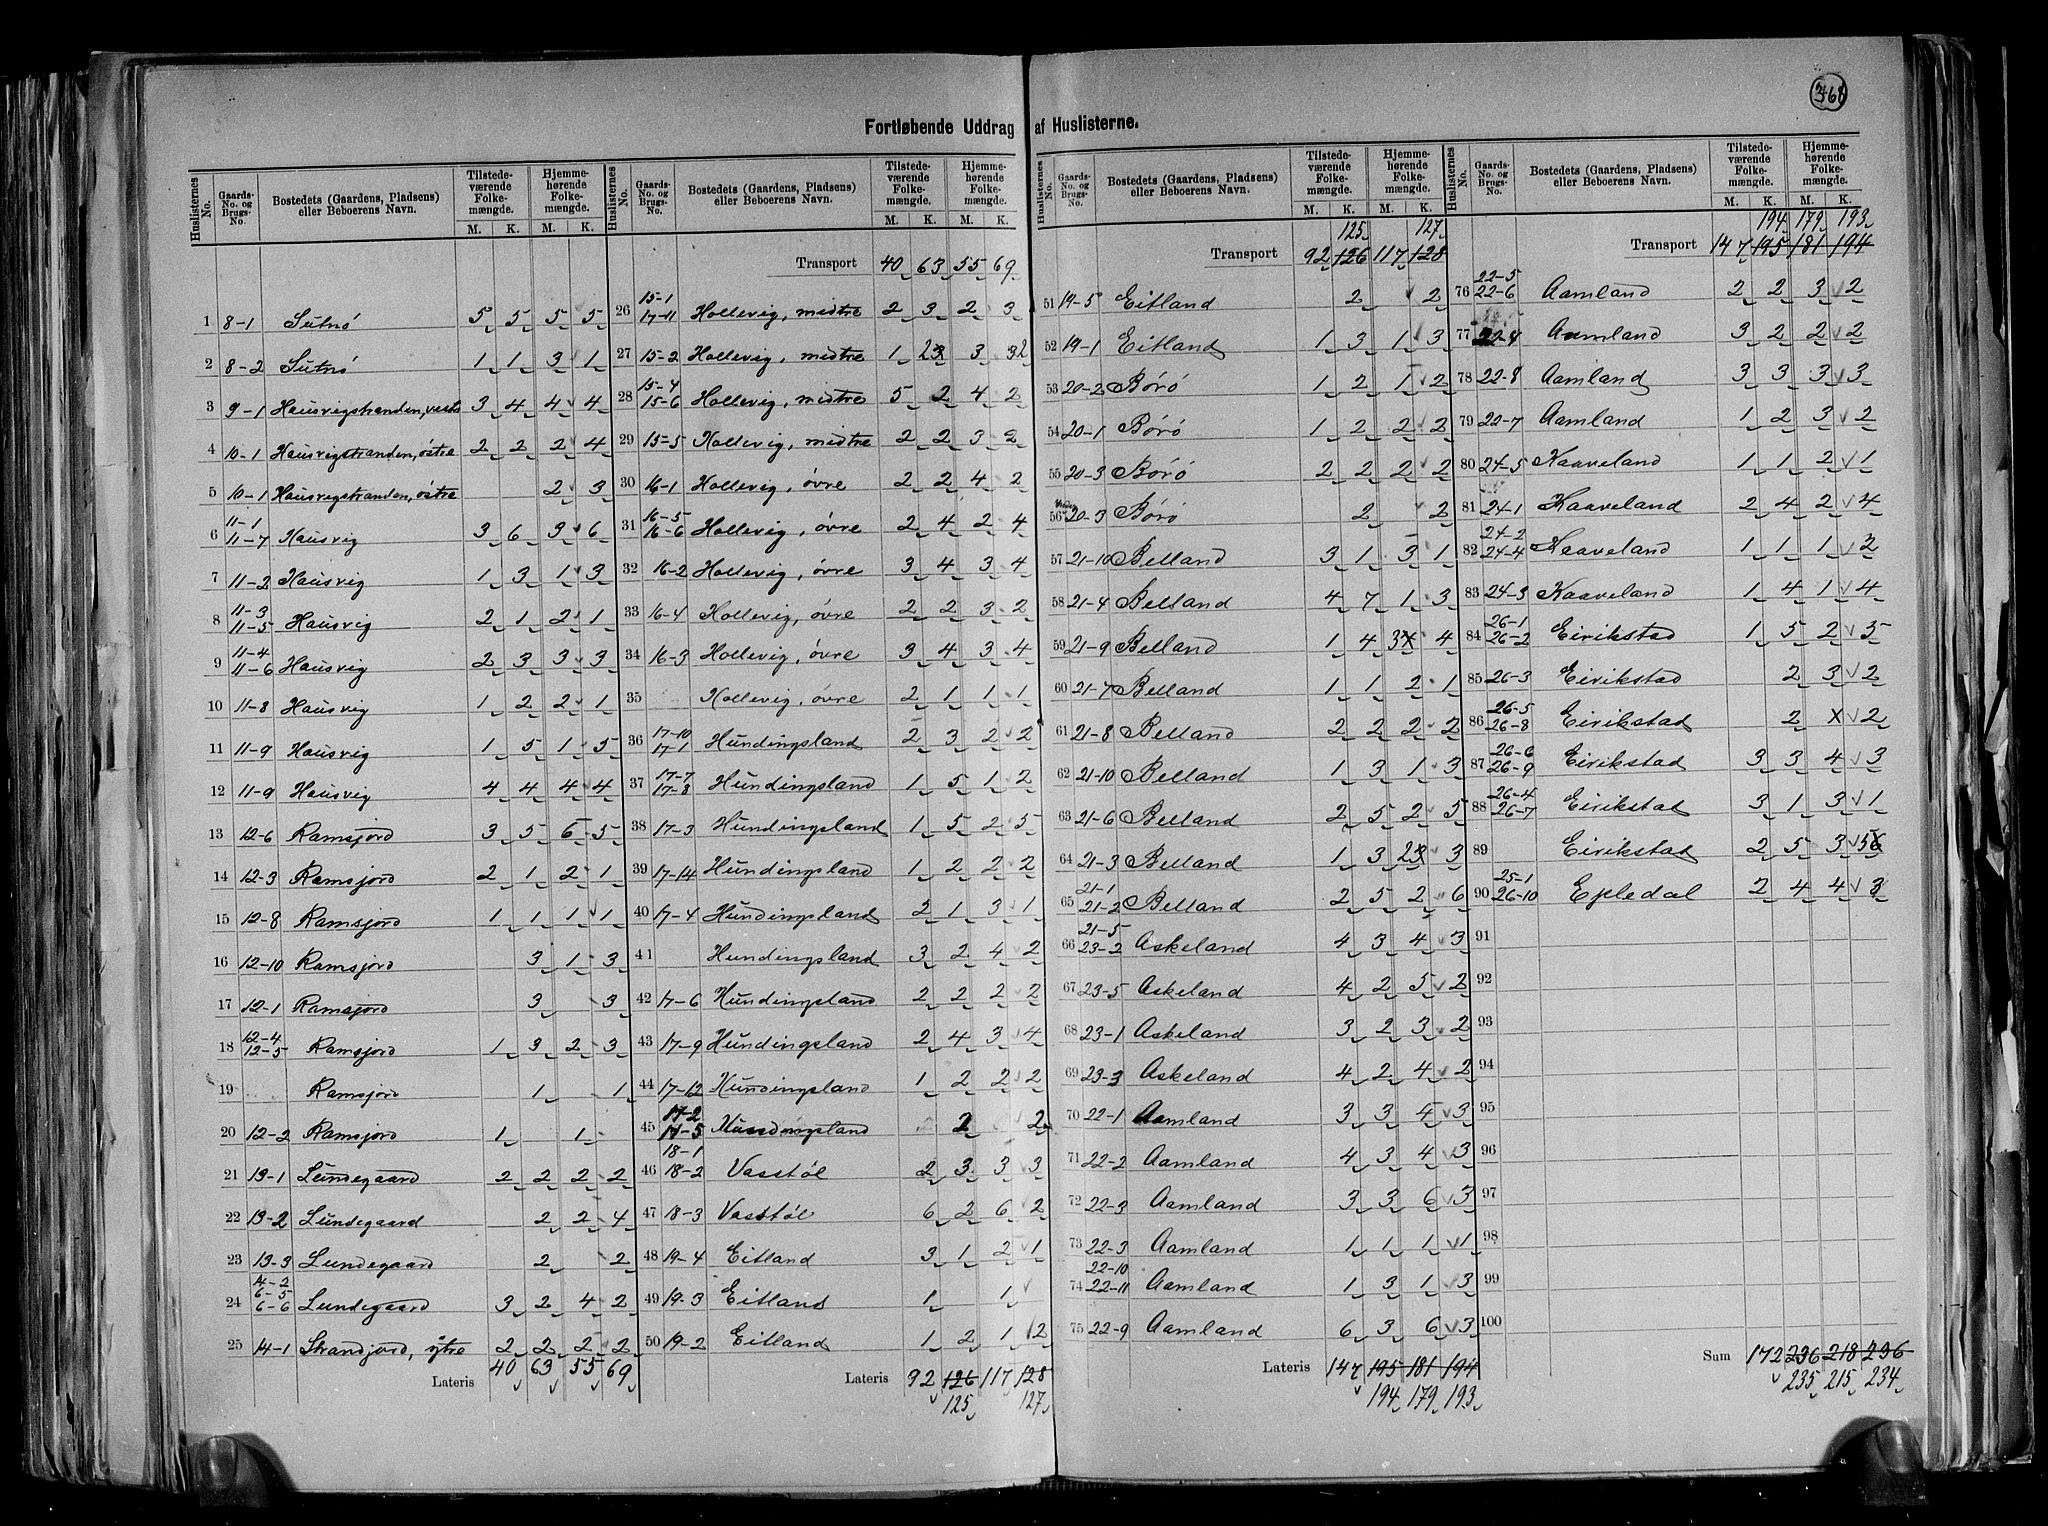 368
Fortløbende Uddrag af Huslisterne.
Huslisternes No. | Gaards-No. og Brugs-No. | Bostedets (Gaardens, Pladsens) eller Beboerens Navn. | Tilstedeværende Folkemængde. M. K. | Hjemmehørende Folkemængde. M. K.
1 8-1 Sutnø 5 5 5 5
2 8-2 Sutnø 1 1 3 1
3 9-1 Hausvigstranden, vestr 3 4 4 4
4 10-1 Hausvigstranden, östre 2 2 2 4
5 10-1 Hausvigstranden, östre 2 3
6 11-1 11-7 Hausvig 3 6 3 6
7 11-2 Hausvig 1 3 1 3
8 11-3 11-5 Hausvig 2 1 2 1
9 11-4 11-6 Hausvig 2 3 3 3
10 11-8 Hausvig 1 2 2 1
11 11-9 Hausvig 1 5 1 5
12 11-9 Hausvig 4 4 4 4
13 12-6 Ramsjord 3 5 6 5
14 12-3 Ramsjord 2 1 2 1
15 12-8 Ramsjord 1 1 1 1
16 12-10 Ramsjord 3 1 3
17 12-1 Ramsjord 3 3
18 12-4 12-5 Ramsjord 1 3 2 3
19 Ramsjord 1 1
20 12-2 Ramsjord 1 1
21 13-1 Lundegaard 2 2 2 2
22 13-2 Lundegaard 2 2 4
23 13-3 Lundegaard 2 2
24 6-5 6-6 Lundegaard 3 2 4 2
25 14-1 Strandjord, ytre 2 2 2 2
Lateris 40 63 55 69
Huslisternes No. | Gaards-No. og Brugs-No. | Bostedets (Gaardens, Pladsens) eller Beboerens Navn. | Tilstedeværende Folkemængde. M. K. | Hjemmehørende Folkemængde. M. K.
Transport 40 63 55 69
26 15-1 17-11 Hollevig, midtre 2 3 2 3
27 15-2 Hollevig, midtre 1 2 3 2
28 15-4 15-6 Hollevig, midtre 5 2 4 2
29 15-5 Hollevig, midtre 2 2 3 2
30 16-1 Hollevig, övre 2 2 4 2
31 16-5 16-6 Hollevig, övre 2 4 2 4
32 16-2 Hollevig, övre 3 4 3 4
33 16-4 Hollevig, övre 2 2 3 2
34 16-3 Hollevig, övre 3 4 3 4
35 Hollevig, övre 2 1 1 1
36 17-10 17-1 Hundingsland 2 3 2 2
37 17-7 17-8 Hundingsland 1 5 1 2
38 17-3 Hundingsland 1 5 2 5
39 17-14 Hundingsland 1 2 2 2
40 17-4 Hundingsland 2 1 3 1
41 Hundingsland 3 2 4 2
42 17-6 Hundingsland 2 2 2 2
43 17-9 Hundingsland 2 4 3 4
44 17-12 Hundingsland 1 2 2 2
45 17-2 17-5 Hundingsland 2 2
46 18-1 18-2 Vasstøl 2 3 3 3
47 18-3 Vasstøl 6 2 6 2
48 19-4 Eitland 3 1 2 1
49 19-3 Eitland 1 1
50 19-2 Eitland 1 2 1 2
Lateris 92 126 117 128
125 127
Huslisternes No. | Gaards-No. og Brugs-No. | Bostedets (Gaardens, Pladsens) eller Beboerens Navn. | Tilstedeværende Folkemængde. M. K. | Hjemmehørende Folkemængde. M. K.
125 127
Transport 92 126 117 128
51 19-5 Eitland 2 2
52 19-1 Eitland 1 3 1 3
53 20-2 Börö 1 2 1 2
54 20-1 Börö 1 2 2 2
55 20-3 Börö 2 2 2 2
56 20-3 Börö 2 2
57 21-10 Belland 3 1 3 1
58 21-4 Belland 4 7 1 3
59 21-9 Belland 1 4 3 4
60 21-7 Belland 1 1 2 1
61 21-8 Belland 2 2 2 2
62 21-10 Belland 1 3 1 3
63 21-6 Belland 2 5 2 5
64 21-3 Belland 1 3 2 3
65 21-1 21-2 Belland 2 5 2 6
66 21-5 23-2 Askeland 4 3 4 3
67 23-5 Askeland 4 2 5 2
68 23-1 Askeland 3 2 3 2
69 23-3 Askeland 4 2 4 2
70 22-1 Aamland 3 3 4 3
71 22-2 Aamland 4 3 4 3
72 22-3 Aamland 3 3 6 3
73 22-3 Aamland 1 1 1 1
74 22-10 22-11 Aamland 1 3 1 3
75 22-9 Aamland 6 3 6 3
Lateris 147 195 181 194
194 179 193
Huslisternes No. | Gaards-No. og Brugs-No. | Bostedets (Gaardens, Pladsens) eller Beboerens Navn. | Tilstedeværende Folkemængde. M. K. | Hjemmehørende Folkemængde. M. K.
194 179 193
Transport 147 195 181 194
76 22-5 22-6 Aamland 2 2 3 2
77 22-4 Aamland 3 2 2 2
78 22-8 Aamland 3 3 3 3
79 22-7 Aamland 1 2 3 2
80 24-5 Kaaveland 1 1 2 1
81 24-1 Kaaveland 2 4 2 4
82 24-2 24-4 Kaaveland 1 1 1 2
83 24-3 Kaaveland 1 4 1 4
84 26-1 26-2 Eirikstad 1 5 2 5
85 26-3 Eirikstad 2 3 2
86 26-5 26-8 Eirikstad 2 2
87 26-6 26-9 Eirikstad 3 3 4 3
88 26-4 26-7 Eirikstad 3 1 3 1
89 Eirikstad 2 5 3 5
90 25-1 26-10 Epledal 2 4 4 3
91
92
93
94
95
96
97
98
99
100
Sum 172 236 218 236
235 215 234